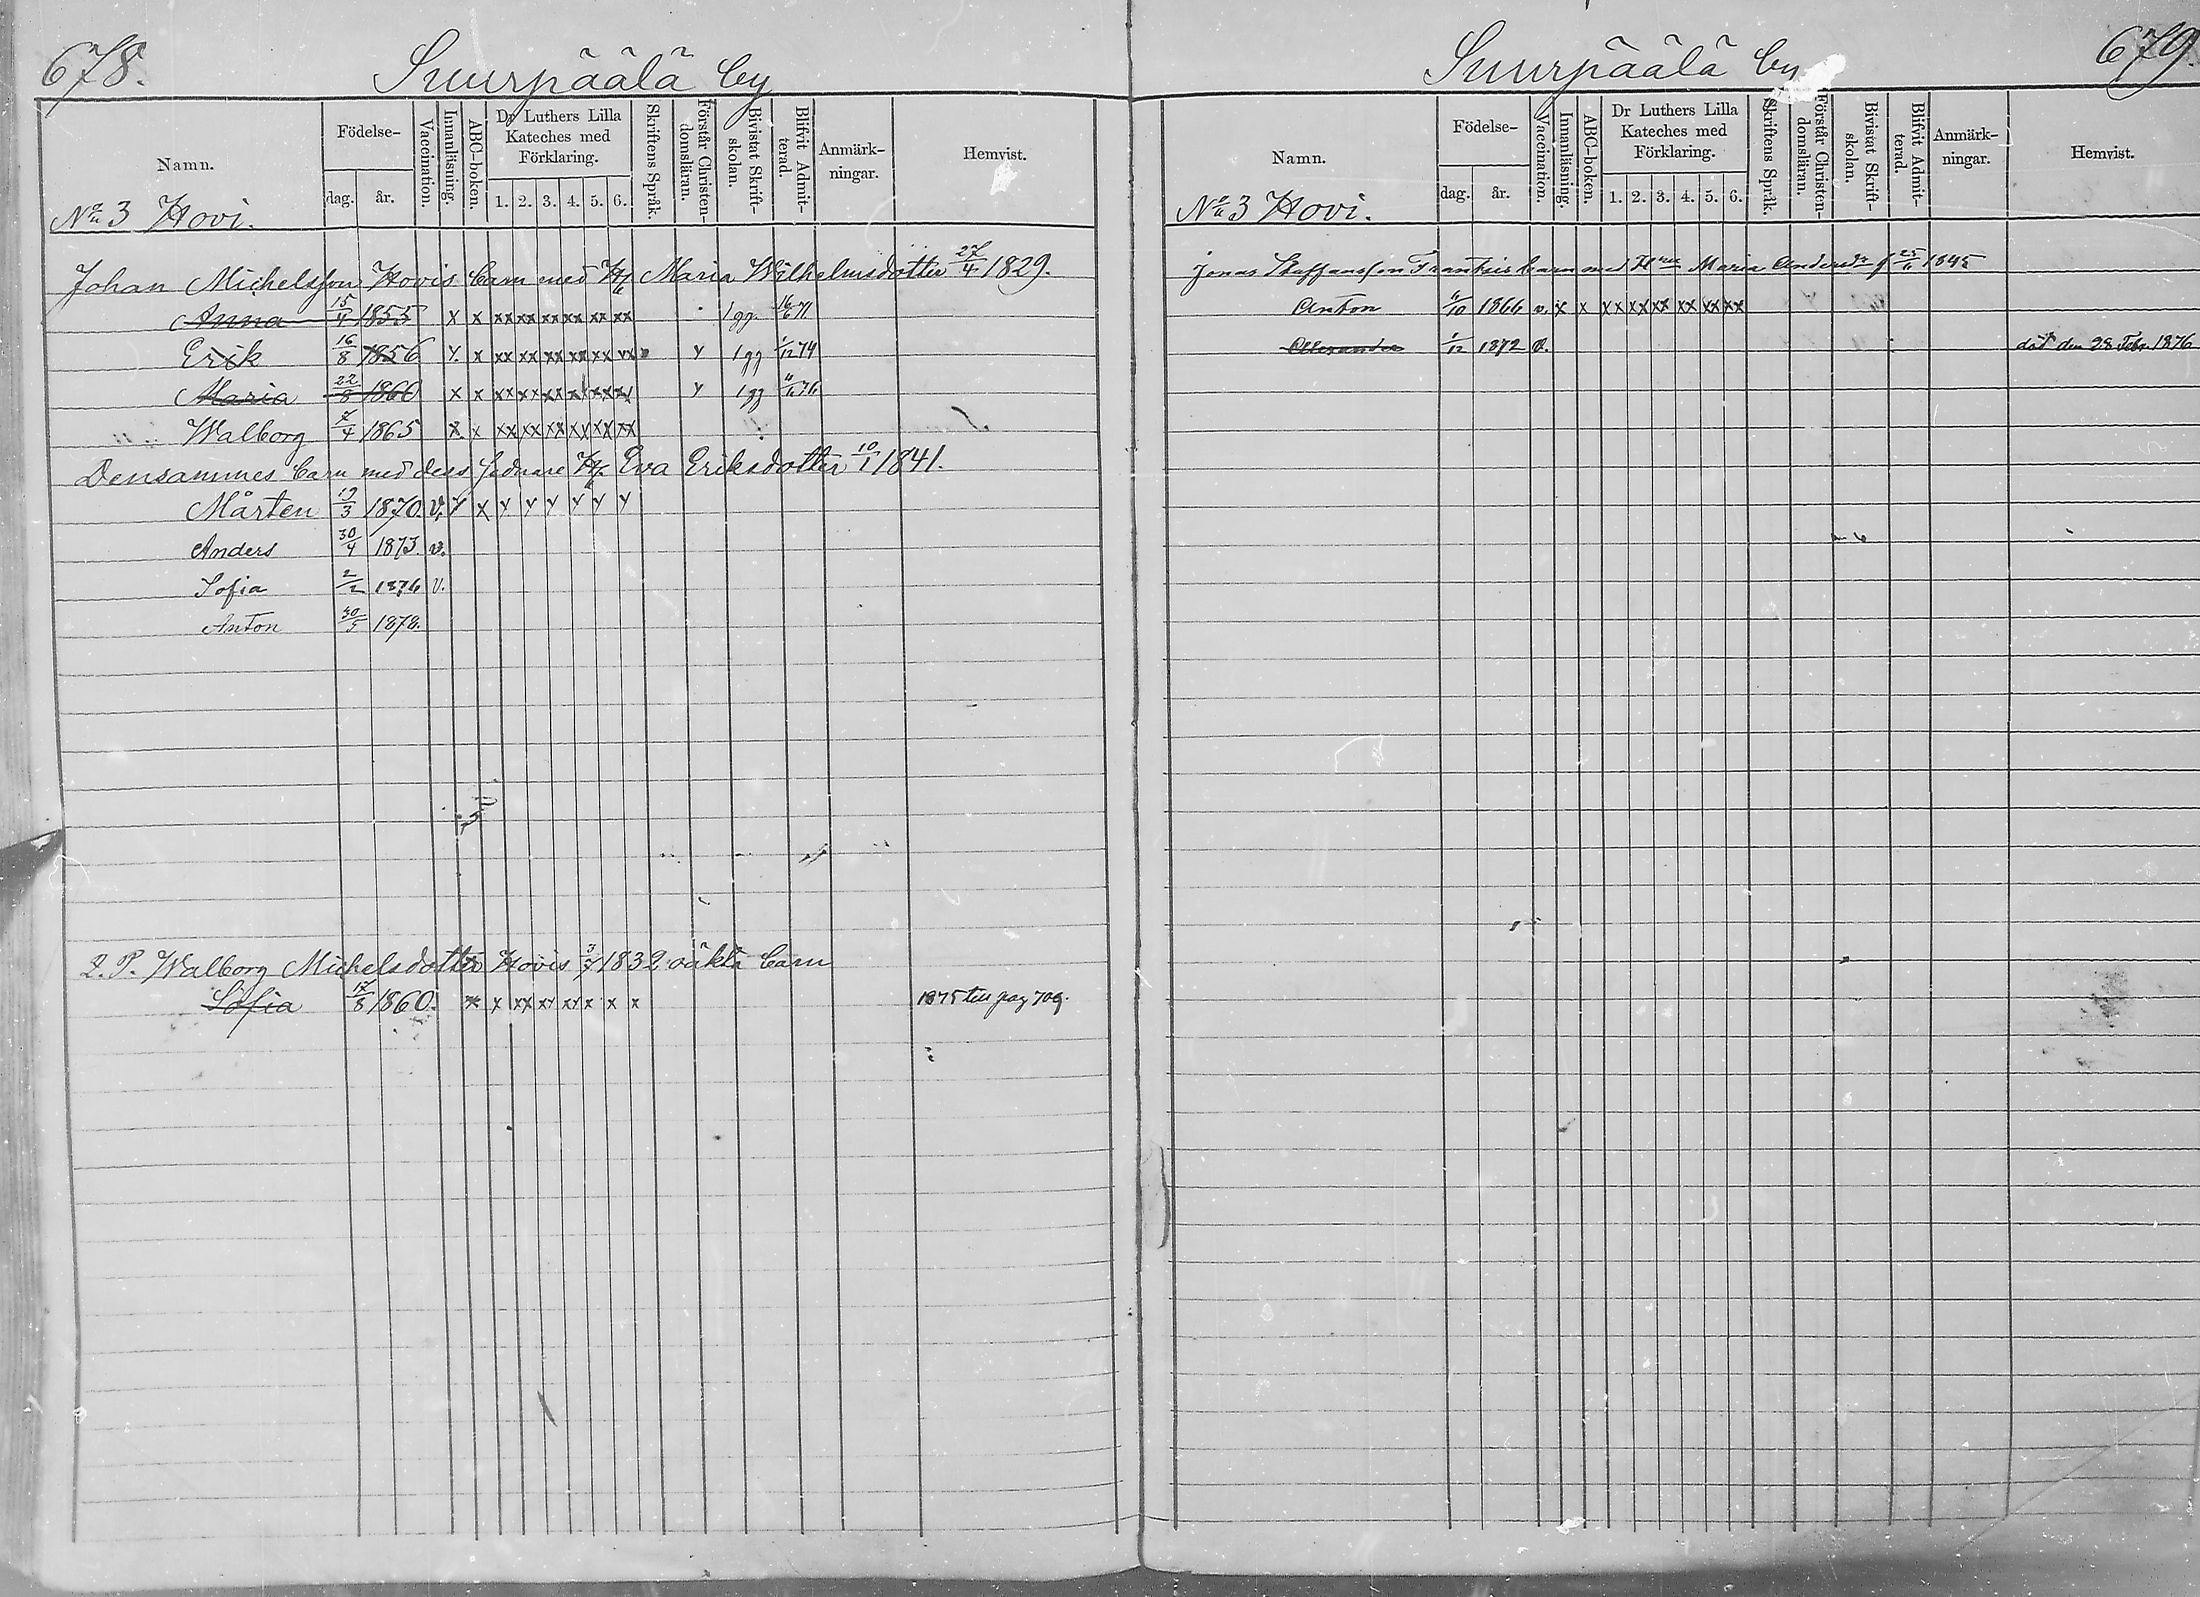 678.
Suurpäälä by
Namn.
Födelse-
dag. år.
Vaccination.
Innanläsning.
ABC-boken.
Dr Luthers Lilla Kateches med Förklaring.
1. 2. 3. 4. 5. 6.
Skriftens Språk.
Förstår Christen-domsläran.
Bivistat Skrift-skolan.
Blifvit Admit-terad.
Anmärk-ningar.
Hemvist.
No 3 Hovi.
Johan Michelsson Hovis barn med Maria Wilhelmsdotter 27/4 1829.
Anna 15/4 1855 x x xx xx xx xx xx xx 1 gg. 16/6 71
Erik 16/8 1856 x x xx xx xx xx xx xx x 1 gg 1/12 74
Maria 22/8 1860 x x xx xx xx xx xx xx x 1 gg
Walborg 7/4 1865 x x xx xx xx xx xx xx
Densammes barn med dess sednare Eva Eriksdotter 10/1 1841.
Mårten 19/3 1870. v. x x x x x x x x
Anders 30/4 1873 v.
Sofia 2/2 1876 v.
Anton 30/5 1878.
Q. P. Walborg Michelsdotter Hovis 1832 oäkta barn
Sofia 17/8 1860. x x xx xx xx x x x 1875 till pag 709.
679.
Suurpäälä by
Namn.
Födelse-
dag. år.
Vaccination.
Innanläsning.
ABC-boken.
Dr Luthers Lilla Kateches med Förklaring.
1. 2. 3. 4. 5. 6.
Skriftens Språk.
Förstår Christen-domsläran.
Bivisat Skrift-skolan.
Blifvit Admit-terad.
Anmärk-ningar.
Hemvist.
No 3 Hovi.
Jonas Staffansson barn med Maria 1845
Anton 1866 v. x x xx xx xx xx xx xx
Alexander 1/12 1872 v. död den 28 Febr. 1876